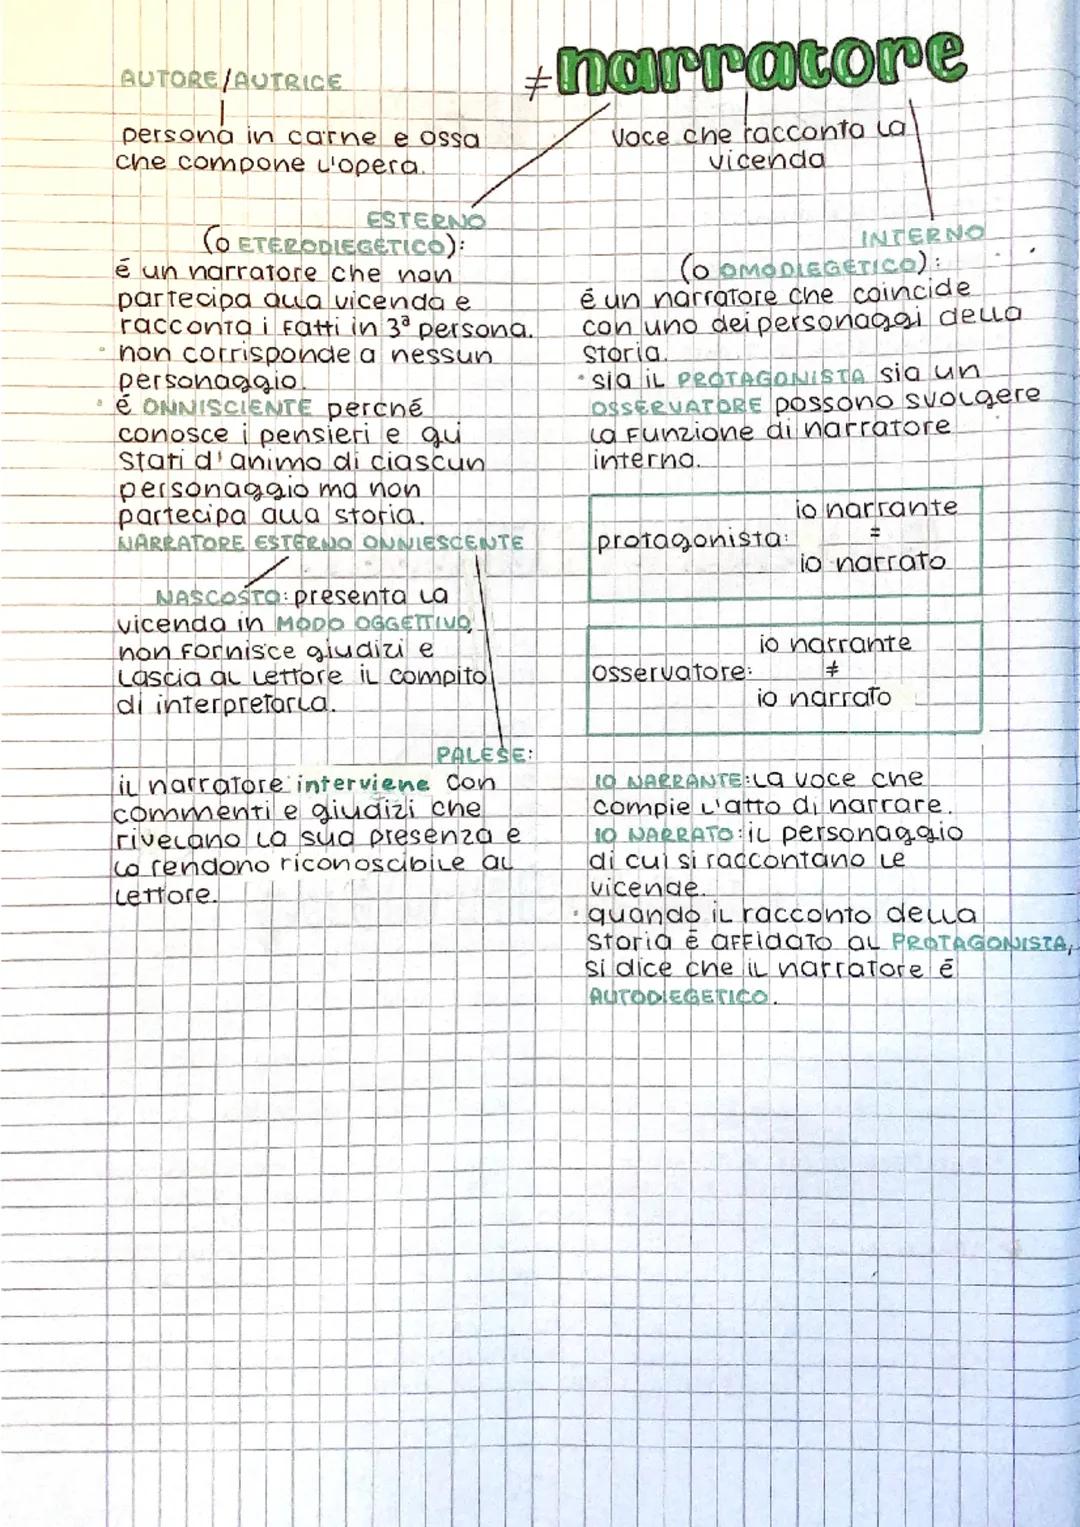 AUTORE/AUTRICE
≠ narratore
persona in carne e ossa
che compone l'opera.
Voce che racconta la
vicenda
ESTERNO
(o ETERODIEGETICO):
é un narratore che non
partecipa alla vicenda e
racconta i fatti in 3ª persona.
• non corrisponde a nessun
personaggio.
• é ONNISCIENTE perché
conosce i pensieri e gli
stati d'animo di ciascun
personaggio ma non
partecipa alla storia.
NARRATORE ESTERNO ONNIESCENTE
NASCOSTO: presenta la
vicenda in MODO OGGETTIVO,
non fornisce giudizi e
lascia al lettore il compito
di interpretarla.
PALESE:
il narratore interviene con
commenti e giudizi che
rivelano la sua presenza e
lo rendono riconoscibile al
lettore.
INTERNO
(o OMODIEGETICO):
é un narratore che coincide
con uno dei personaggi della
storia.
• sia il PROTAGONISTA sia un
OSSERVATORE possono svolgere
la funzione di narratore
interno.
io narrante
protagonista: =
io narrato
io narrante
osservatore: ≠
io narrato
IO NARRANTE: la voce che
compie l'atto di narrare.
IO NARRATO: il personaggio
di cui si raccontano le
vicende.
• quando il racconto della
storia é affidato al PROTAGONISTA,
si dice che il narratore é
AUTODIEGETICO.